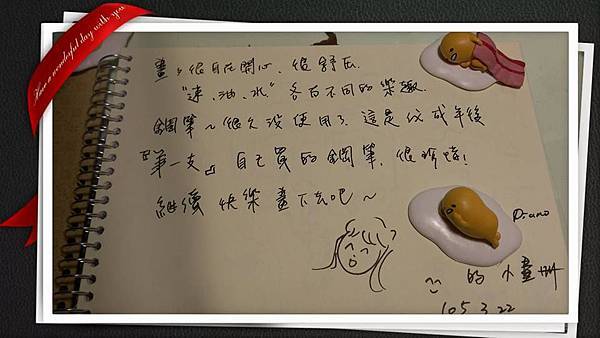 Have a wonderful day with you
畫，很自在開心、很舒压.
"速、油、水"各有不同的樂趣.
鋼筆～很久没使用了、這是我成年後
『第一支』自己買的鋼筆，很珍惜!
継續 快樂 畫下去吧～
Diano
的小畫冊
105.3.22